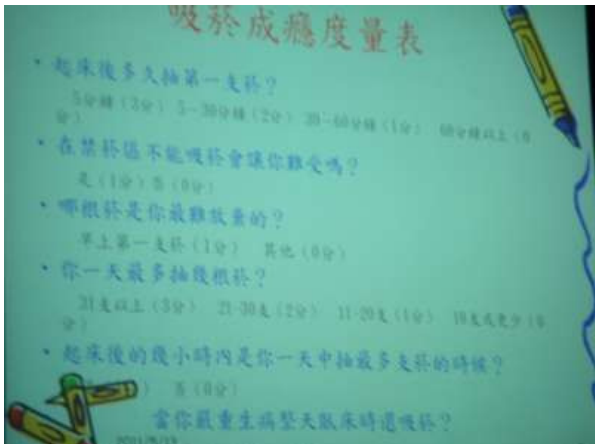 吸菸成癮度量表
• 起床後多久抽第一支菸？
5分鐘(3分) 5-30分鐘(2分) 30-60分鐘(1分) 60分鐘以上(0
分)
• 在禁菸區不能吸菸會讓你難受嗎？
是(1分) 否(0分)
• 哪根菸是你最難放棄的？
早上第一支菸(1分) 其他(0分)
• 你一天最多抽幾根菸？
31支以上(3分) 21-30支(2分) 11-20支(1分) 10支或更少(0
分)
• 起床後的幾小時內是你一天中抽最多支菸的時候？
) 否(0分)
當你嚴重生病整天臥床時還吸菸？